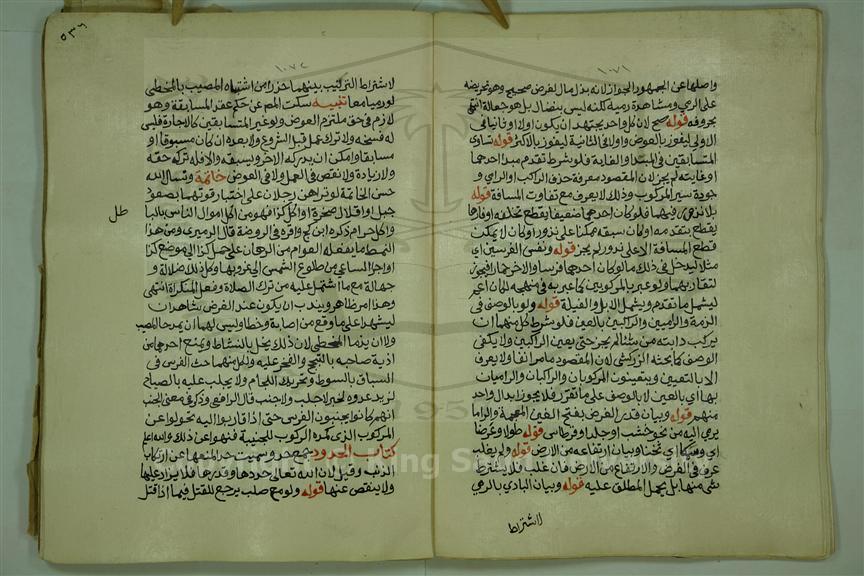 ١٠٧١
واصلها عن الجمهور الجواز لانه بذل مال لغرض صحيح وهو تحريضه
على الرمي ومشاهدة رميه لكنه ليس بنضال بل هو جعالة انتهى
بحروفه قوله صح لان كل واحد يجتهد ان يكون اولا او ثانيا في
الاولى ليفوز بالعوض واولا في الثانية ليفوز بالاكثر قوله تساوى
المتسابقين في المبتدا والغاية فلو شرط تقدم مبدا احدهما
او غايته لم يجز لان المقصود معرفة حذق الراكب والرامي و
جودة سير المركوب وذلك لا يعرف مع تفاوت المسافة قوله
بلا ندور فيهما فلو كان احدهما ضعيفا يقطع بتخلفه او فارها
يقطع بتقدمه او كان سبقه ممكنا على ندور او كان لا يمكنه
قطع المسافة الا على ندور لم يجز قوله ونفس الفرسين اي
مثلا ليدخل في ذلك ما لو كان احدهما فرسا والاخر حمارا فيجوز
لتقاربهما ولو عبر بالمركوبين كما عبر به في منهجه لكان اعم
ليشمل ما تقدم ويشمل الابل والفيلة قوله ولو بالوصف في
الذمة والراميين والراكبين بالعين فلو شرط كل منهما ان
يركب دابته من شاء لم يجز حتى يعين الراكبين ولا يكفي
الوصف كما بحثه الزركشي لان المقصود ما مر انفا ولا يعرف
الا بالتعيين ويتعينون المركوبان والراكبان والراميان
بها اي بالعين لا بالوصف على ما تقرر فلا يجوز ابدال واحد
منهم قوله وبيان قدر الغرض بفتح الغين المعجمة والراما
يرمي اليه من نحو خشب او جلد او قرطاس قوله طولا وعرضا
اي وسمكا اي ثخنا وبيان ارتفاعه من الارض قوله ولم يغلب
عرف في الغرض والارتفاع من الارض فان غلب فلا يشترط
شي منها بل يحمل المطلق عليه قوله وبيان البادي بالرمي
لاشتراط
٥٣٦
١٠٧٢
لاشتراط الترتيب بينهما حذرا من اشتباه المصيب بالمخطي
لو رميا معا تنبيه سكت المص عن حكم عقد المسابقة وهو
لازم في حق ملتزم العوض ولو غير المتسابقين كالاجارة فليس
له فسخه ولا ترك عمل قبل الشروع ولا بعده ان كان مسبوقا او
سابقا وامكن ان يدركه الاخر ويسبقه والا فله تركه حقه
ولا زيادة ولا نقص في العمل ولا في العوض خاتمة ونسال الله
حسن الخاتمة لو تراهن رجلان على اختبار قوتهما بصعود
جبل او اقلال صخرة او اكل كذا فهو من اكل اموال الناس بالبا
طل
واكل حرام ذكره ابن كج واقره في الروضة قال الدميري ومن هذا
النمط ما يفعله العوام من الرهان على حمل كذا الى موضع كذا
او اجرا الساعي من طلوع الشمس الى غروبها وكل ذلك ضلالة و
جهالة مع ما اشتمل عليه من ترك الصلاة وفعل المنكرات انتهى
وهذا امر ظاهر ويندب ان يكون عند الغرض شاهدان
ليشهدا على ما وقع من اصابة وخطا وليس لهما ان يمدحا المصيب
ولا ان يذما المخطي لان ذلك يخل بالنشاط ويمنع احدهما من
اذية صاحبه بالتبجح والفخر عليه ولكل منهما حث الفرس في
السباق بالسوط وتحريك اللجام ولا يجلب عليه بالصياح
ليزيد عدوه لخبر لا جلب ولا جنب قال الرافعي وذكر في معنى الجنب
انهم كانوا يجنبون الفرس حتى اذا قاربوا اليه تحولوا عن
المركوب الذي كده الركوب للجنيبة فنهوا عن ذلك والله اعلم
كتاب الحدود جمع حد وسميت حدودا لمنعها عن ارتكاب
الذنب وقيل لان الله تعالى حددها وقدرها فلا يزاد عليها
ولا ينقص عنها قوله ولو مع صلب يرجع للقتل فيما اذا قتل